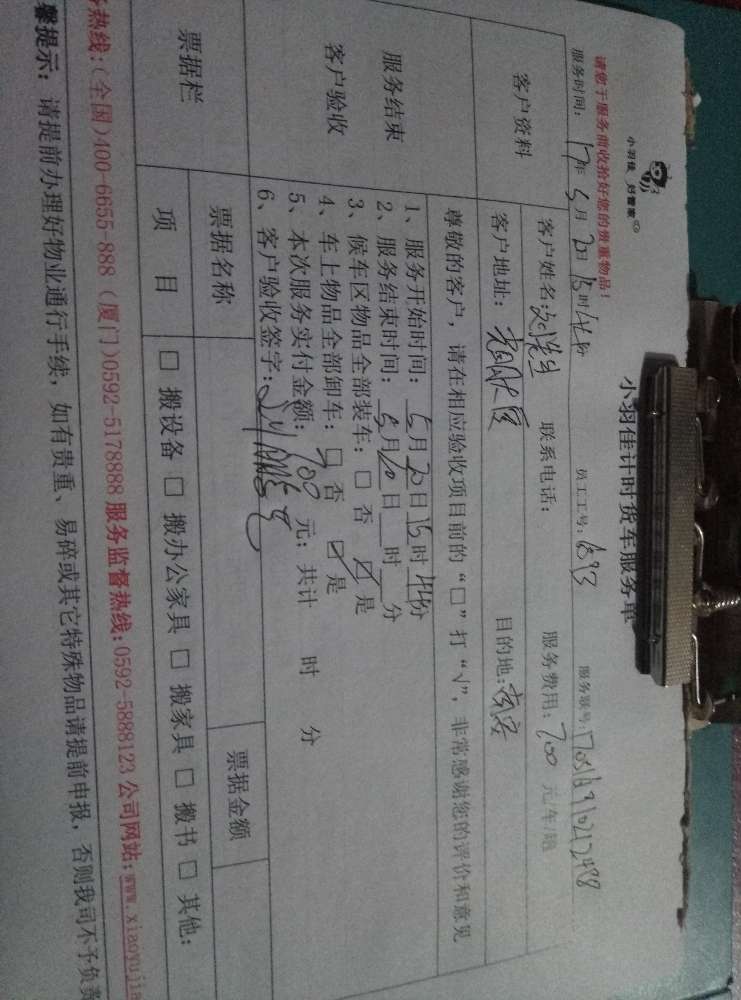 小羽佳 好管家
小羽佳计时货车服务单
请您于服务前收拾好您的贵重物品!
服务时间: 17年5月20日15时44分 员工工号: 6893 服务账号:
客户资料
客户姓名: 先生 联系电话: 服务费用: 700 元/车/趟
客户地址: 目的地:
尊敬的客户, 请在相应验收项目前的“□”打“√”, 非常感谢您的评价和意见
服务结束
客户验收
1、服务开始时间: 5月20日15时44分
2、服务结束时间: 5月20日 时 分
3、候车区物品全部装车: □ 否 ☑ 是
4、车上物品全部卸车: □ 否 ☑ 是
5、本次服务实付金额: 700 元; 共计 时 分
6、客户验收签字:
票据栏
票据名称 票据金额
项 目 □ 搬设备 □ 搬办公家具 □ 搬家具 □ 搬书 □ 其他:
热线:(全国)400-6655-888 (厦门)0592-5178888 服务监督热线:0592-5888123 公司网站:www.xiaoyujia
馨提示: 请提前办理好物业通行手续, 如有贵重、易碎或其它特殊物品请提前申报, 否则我司不予负责